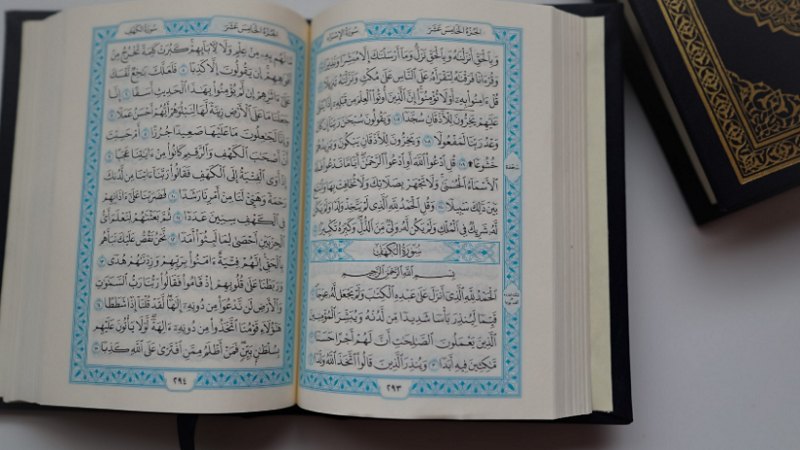 الجزء الخامس عشر
سورة الإسراء
وَبِالْحَقِّ أَنزَلْنَاهُ وَبِالْحَقِّ نَزَلَ وَمَا أَرْسَلْنَاكَ إِلَّا مُبَشِّرًا وَنَذِيرًا ١٠٥
وَقُرْآنًا فَرَقْنَاهُ لِتَقْرَأَهُ عَلَى النَّاسِ عَلَى مُكْثٍ وَنَزَّلْنَاهُ تَنزِيلًا ١٠٦
قُلْ آمِنُوا بِهِ أَوْ لَا تُؤْمِنُوا إِنَّ الَّذِينَ أُوتُوا الْعِلْمَ مِن قَبْلِهِ إِذَا يُتْلَى
عَلَيْهِمْ يَخِرُّونَ لِلْأَذْقَانِ سُجَّدًا ١٠٧ وَيَقُولُونَ سُبْحَانَ رَبِّنَا إِن كَانَ
وَعْدُ رَبِّنَا لَمَفْعُولًا ١٠٨ وَيَخِرُّونَ لِلْأَذْقَانِ يَبْكُونَ وَيَزِيدُهُمْ
خُشُوعًا ۩ ١٠٩ قُلِ ادْعُوا اللَّهَ أَوِ ادْعُوا الرَّحْمَٰنَ أَيًّا مَّا تَدْعُوا فَلَهُ
الْأَسْمَاءُ الْحُسْنَىٰ وَلَا تَجْهَرْ بِصَلَاتِكَ وَلَا تُخَافِتْ بِهَا وَابْتَغِ
بَيْنَ ذَٰلِكَ سَبِيلًا ١١٠ وَقُلِ الْحَمْدُ لِلَّهِ الَّذِي لَمْ يَتَّخِذْ وَلَدًا وَلَمْ يَكُن
لَّهُ شَرِيكٌ فِي الْمُلْكِ وَلَمْ يَكُن لَّهُ وَلِيٌّ مِّنَ الذُّلِّ وَكَبِّرْهُ تَكْبِيرًا ١١١
سورة الكهف
بِسْمِ اللَّهِ الرَّحْمَٰنِ الرَّحِيمِ
الْحَمْدُ لِلَّهِ الَّذِي أَنزَلَ عَلَىٰ عَبْدِهِ الْكِتَابَ وَلَمْ يَجْعَل لَّهُ عِوَجًا ١
قَيِّمًا لِّيُنذِرَ بَأْسًا شَدِيدًا مِّن لَّدُنْهُ وَيُبَشِّرَ الْمُؤْمِنِينَ
الَّذِينَ يَعْمَلُونَ الصَّالِحَاتِ أَنَّ لَهُمْ أَجْرًا حَسَنًا ٢
مَّاكِثِينَ فِيهِ أَبَدًا ٣ وَيُنذِرَ الَّذِينَ قَالُوا اتَّخَذَ اللَّهُ وَلَدًا ٤
٢٩٣
سورة الكهف
الجزء الخامس عشر
مَّا لَهُم بِهِ مِنْ عِلْمٍ وَلَا لِآبَائِهِمْ كَبُرَتْ كَلِمَةً تَخْرُجُ مِنْ
أَفْوَاهِهِمْ إِن يَقُولُونَ إِلَّا كَذِبًا ٥ فَلَعَلَّكَ بَاخِعٌ نَّفْسَكَ
عَلَىٰ آثَارِهِمْ إِن لَّمْ يُؤْمِنُوا بِهَٰذَا الْحَدِيثِ أَسَفًا ٦ إِنَّا
جَعَلْنَا مَا عَلَى الْأَرْضِ زِينَةً لَّهَا لِنَبْلُوَهُمْ أَيُّهُمْ أَحْسَنُ عَمَلًا ٧
وَإِنَّا لَجَاعِلُونَ مَا عَلَيْهَا صَعِيدًا جُرُزًا ٨ أَمْ حَسِبْتَ
أَنَّ أَصْحَابَ الْكَهْفِ وَالرَّقِيمِ كَانُوا مِنْ آيَاتِنَا عَجَبًا ٩
إِذْ أَوَى الْفِتْيَةُ إِلَى الْكَهْفِ فَقَالُوا رَبَّنَا آتِنَا مِن لَّدُنكَ
رَحْمَةً وَهَيِّئْ لَنَا مِنْ أَمْرِنَا رَشَدًا ١٠ فَضَرَبْنَا عَلَىٰ آذَانِهِمْ
فِي الْكَهْفِ سِنِينَ عَدَدًا ١١ ثُمَّ بَعَثْنَاهُمْ لِنَعْلَمَ أَيُّ
الْحِزْبَيْنِ أَحْصَىٰ لِمَا لَبِثُوا أَمَدًا ١٢ نَّحْنُ نَقُصُّ عَلَيْكَ نَبَأَهُم
بِالْحَقِّ إِنَّهُمْ فِتْيَةٌ آمَنُوا بِرَبِّهِمْ وَزِدْنَاهُمْ هُدًى ١٣
وَرَبَطْنَا عَلَىٰ قُلُوبِهِمْ إِذْ قَامُوا فَقَالُوا رَبُّنَا رَبُّ السَّمَاوَاتِ
وَالْأَرْضِ لَن نَّدْعُوَ مِن دُونِهِ إِلَٰهًا لَّقَدْ قُلْنَا إِذًا شَطَطًا ١٤
هَٰؤُلَاءِ قَوْمُنَا اتَّخَذُوا مِن دُونِهِ آلِهَةً لَّوْلَا يَأْتُونَ عَلَيْهِم
بِسُلْطَانٍ بَيِّنٍ فَمَنْ أَظْلَمُ مِمَّنِ افْتَرَىٰ عَلَى اللَّهِ كَذِبًا ١٥
٢٩٤